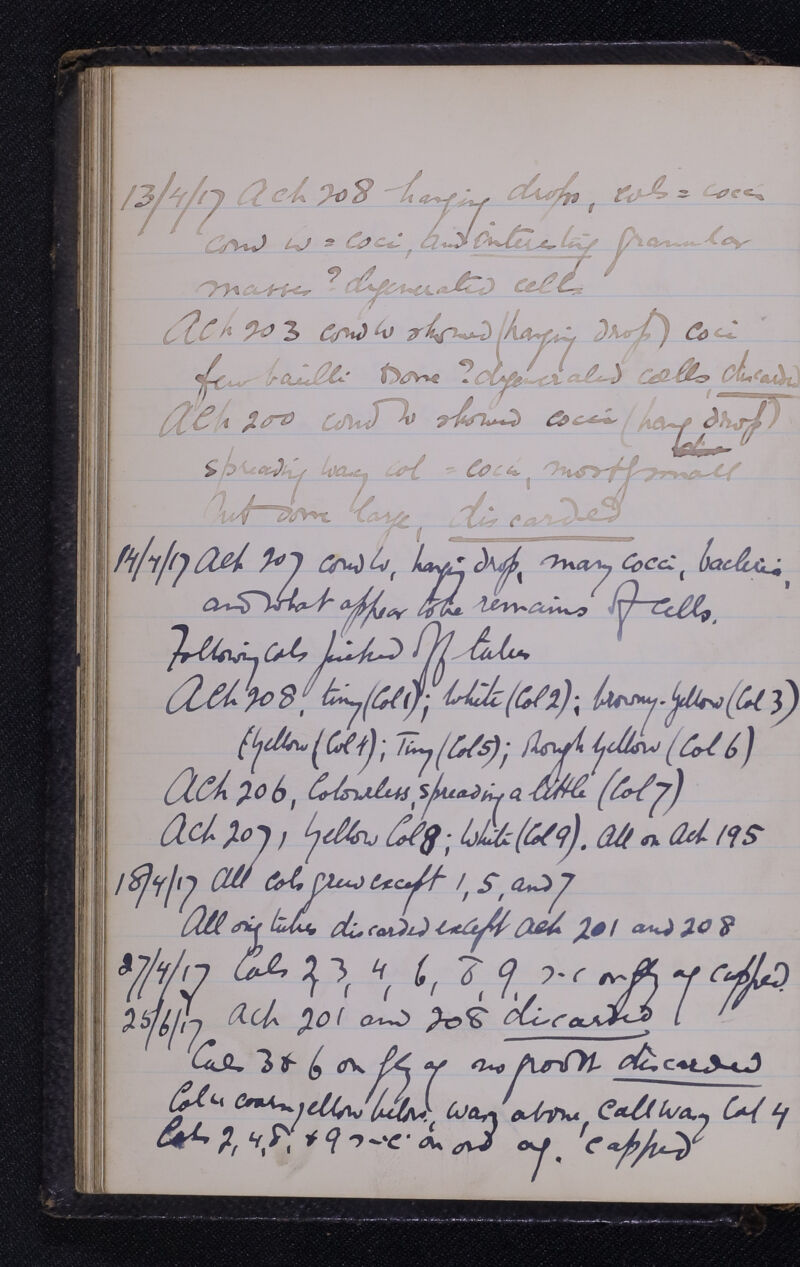 13/4/17 Ach 208 hanging drops, cols = cocci
cond w = coci, and interesting granular
masses ? degenerated cells
Ach 203 cond w showed (hanging drop) coci
few bacilli some ? degenerated cells, discarded
Ach 200 cond w showed cocci (hang drop)
spreading waxy col = cocci, mostly small
but some large, discarded
14/4/17 Ach 207 cond w, hanging drop, many cocci, bacteria,
and what appear to be remains of cells.
Following cols picked off tubes
Ach 208, tiny (Col 1); White (Col 2); browny-yellow (Col 3)
Yellow (Col 4); Tiny (Col 5); Rough yellow (Col 6)
Ach 206, Colourless, spreading a little (Col 7)
Ach 207, Yellow Col 8; White (Col 9). All on Ach 195
18/4/17 All cols grew except 1, 5, and 7
All orig tubes discarded except Ach 201 and 208
27/4/17 Cols 2, 3, 4, 6, 8, 9, s-c on gly ag capped.
25/6/17 Ach 201 and 208 discarded
Cols 3 & 6 on gly ag no growth discarded
Col 4 yellow below, waxy above, call waxy Col 4
Cols 2, 4, 8, & 9 s-c on ord ag. capped